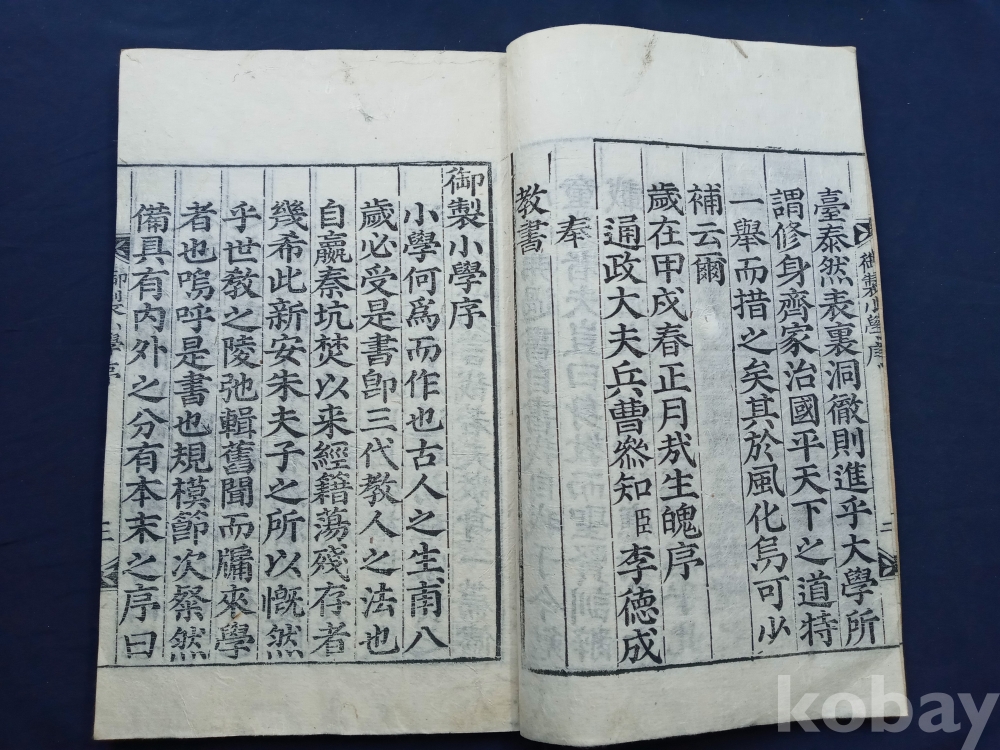 臺泰然表裏洞徹則進乎大學所
謂修身齊家治國平天下之道特
一舉而措之矣其於風化焉可少
補云爾
歲在甲戌春正月哉生魄序
通政大夫兵曹叅知臣李德成
奉
教書
御製小學序
小學何爲而作也古人之生甫八
歲必受是書卽三代教人之法也
自嬴秦坑焚以来經籍蕩殘存者
幾希此新安朱夫子之所以慨然
乎世教之陵弛輯舊聞而牖來學
者也嗚呼是書也規模節次粲然
備具有內外之分有本末之序曰
御製小學序
二
御製小學序
二
kobay